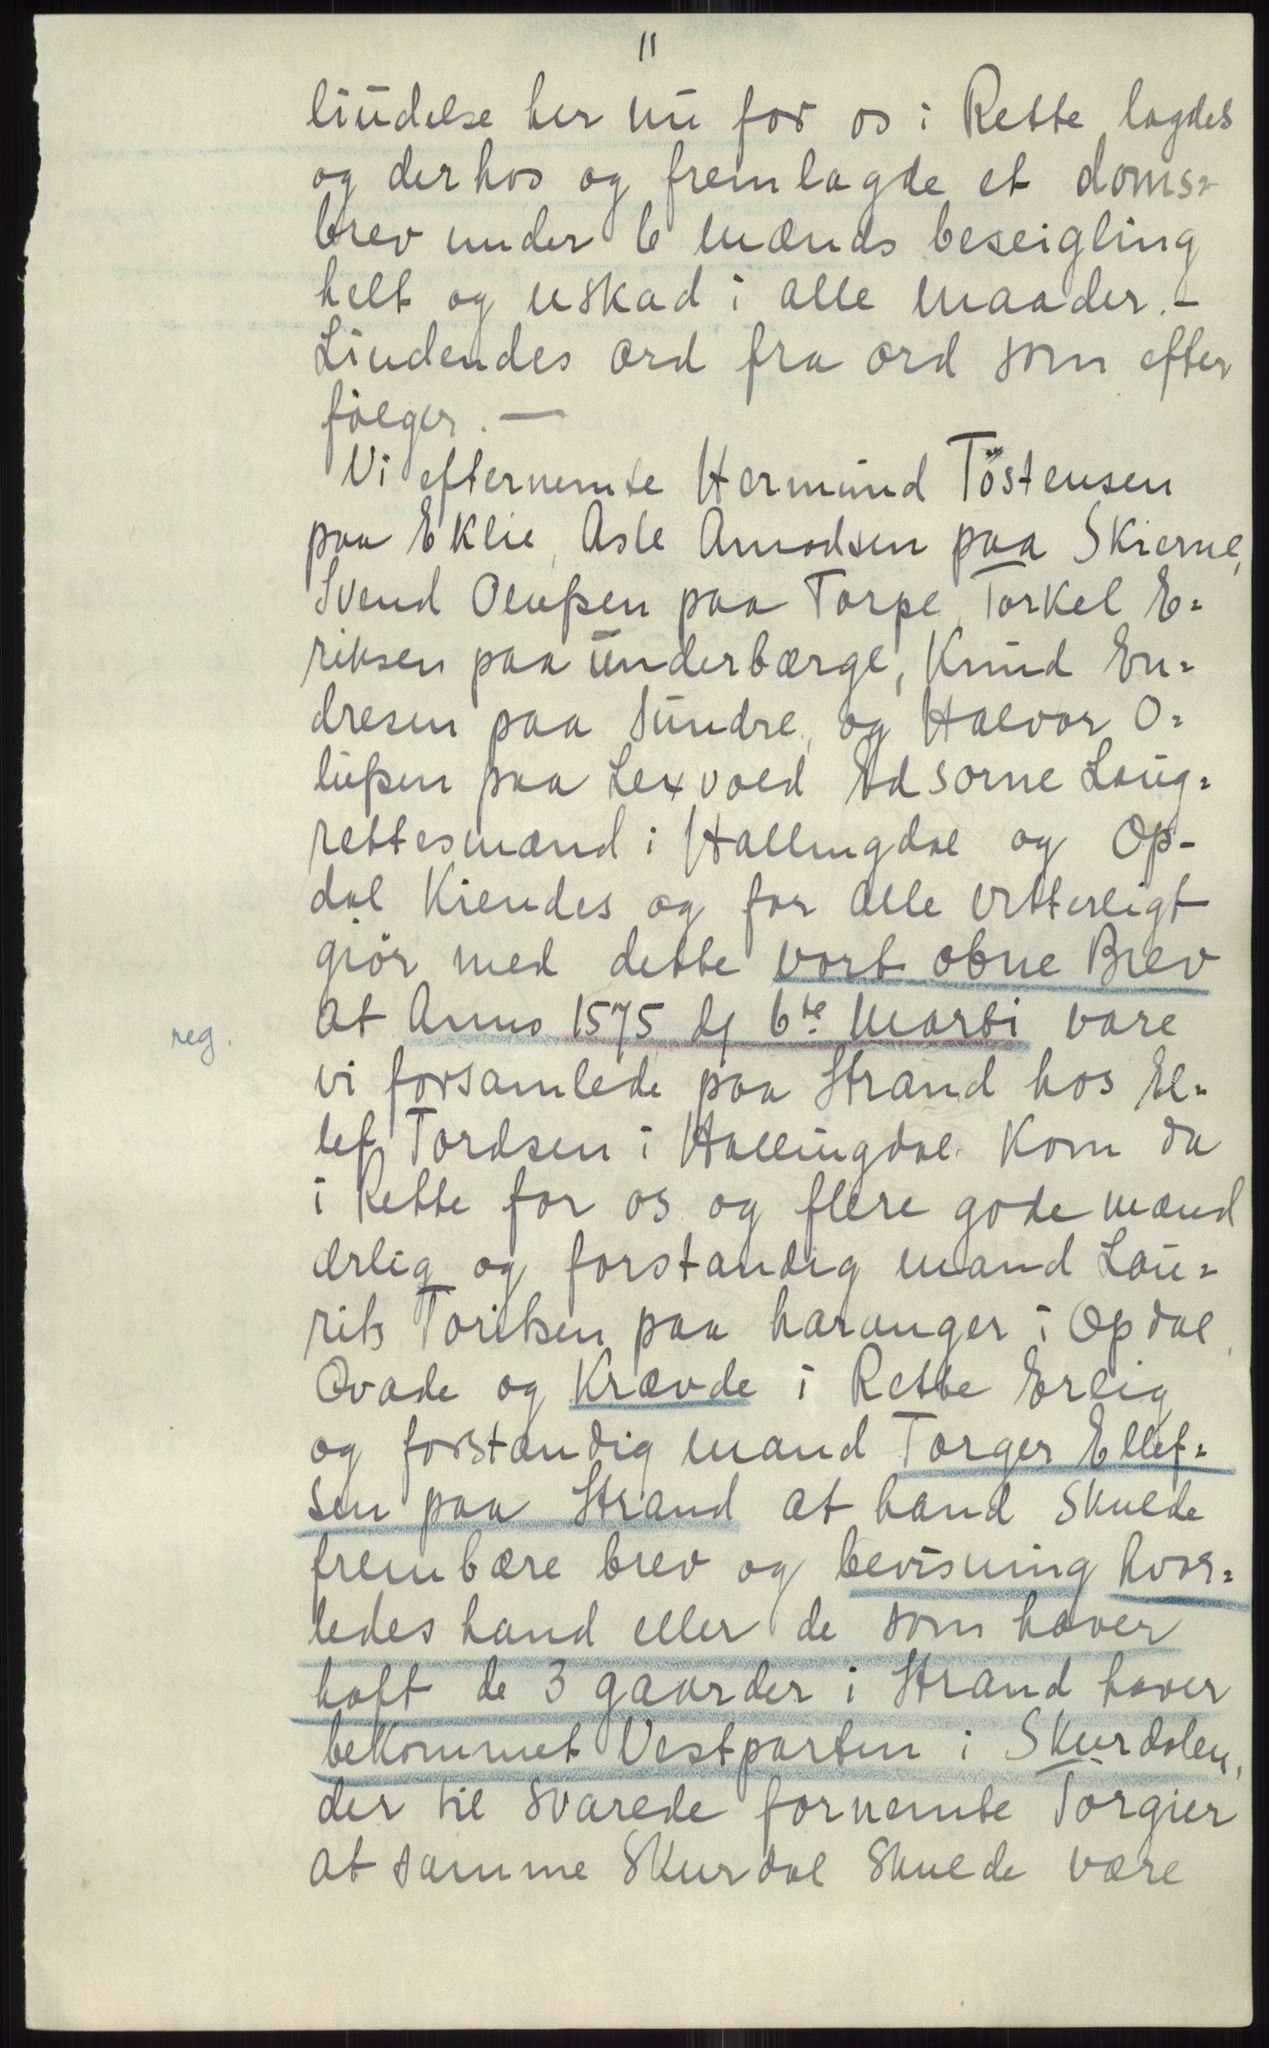 11
liudelse her nu for os i Rette lagdes
og derhos og fremlagde et doms=
brev under 6 mænds beseigling
helt og uskad i alle maader. -
Liudendes ord fra ord som efter
følger. —
Vi efternemte Hermund Töstensen
paa Eklie, Asle Amodsen paa Skierve,
Svend Olufsen paa Torpe, Torkel E=
riksen paa Underbærge, Knud En=
dresen paa Sundre, og Halvor O=
lufsen paa Lexvold Edsorne Laug=
rettesmænd i Hallingdal og Op-
dal Kiendes og for alle vitterligt
giör med dette vort obne Brev
reg.
at Anno 1575 dj 6te Marti vare
vi forsamlede paa Strand hos El=
lef Tordsen i Hallingdal. Kom da
i Rette for os og flere gode mænd
ærlig og forstandig mand Lau=
rits Toritsen paa haranger i Opdal,
Qvade og Krævde i Rette Erlig
og forstandig mand Torger Ellef=
sen paa Strand at hand skulde
frembære brev og bevisning hvor=
ledes hand eller de som haver
haft de 3 gaarder i Strand haver
bekommet Vestparten i Skurdalen,
der til svarede fornemte Torgier
at samme Skurdal skulde være